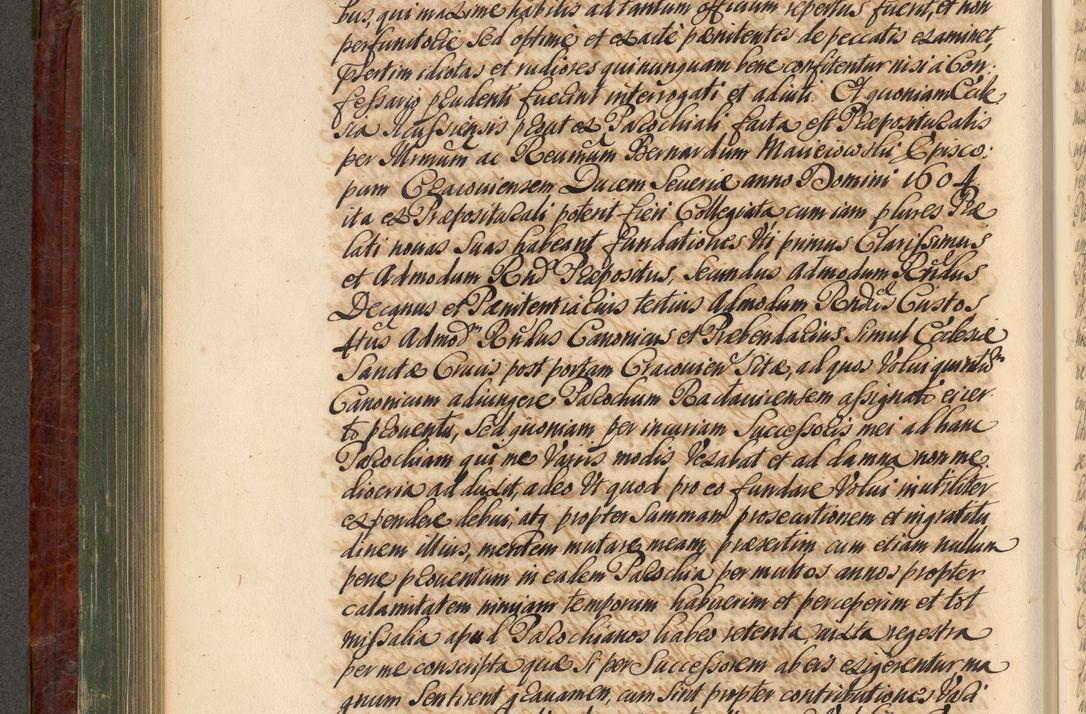 bus, qui maxime habilis ad tantum officium repertus fuerit, et non
perfunctorie sed optime et exacte pænitentes de peccatis examinet,
præsertim idiotas et rudiores qui nunquam bene confitentur nisi a Con¬
fessario prudenti fuerint interrogati et adiuti. Et quoniam Eccle
sia prout ex Parochiali facta est Præpositalis
per Illrmum ac Reumum Bernardum Macieiowski Episco:
pum Cracouiensem Ducem Seueriæ anno Domini 1604
ita ex Præpositurali poterit fieri Collegiata cum iam plures Præ
lati nouas suas habeant fundationes Vti primus Clarissimus
et Admodum Rndus Præpositus, Secundus Admodum Rndus
Decanus et Pænitentiarius tertius Admodum Rndus Custos
4tus Admodm Rndus Canonicus et Præbendarius simul Ecclesiæ
Sanctæ Crucis post portam Cracouien Sitæ, ad quos Volui quintum
Canonicum adiungere Parochum Raclauicensem assignato ei cer¬
to prouentu, sed quoniam per incuriam Successoris mei ad hanc
Parochiam qui me Varijs modis Vexabat et ad damna non me¬
diocria adduxit, adeo Vt quod pro eo fundare Volui inutiliter
expendere debui, atq propter Summam prosecutionem et ingratitu
dinem illius, mentem mutare meam, præsertim cum etiam nullum
pene prouentum in eadem Parochia per multos annos propter
calamitatem nimiam temporum habuerim et perceperim et tot
missalia apud Parochianos habeo retenta iuxta regestra
per me conscripta quæ si per Successorem ab eis exigerentur ma
gnum sentirent grauamen, cum sint propter contributiones